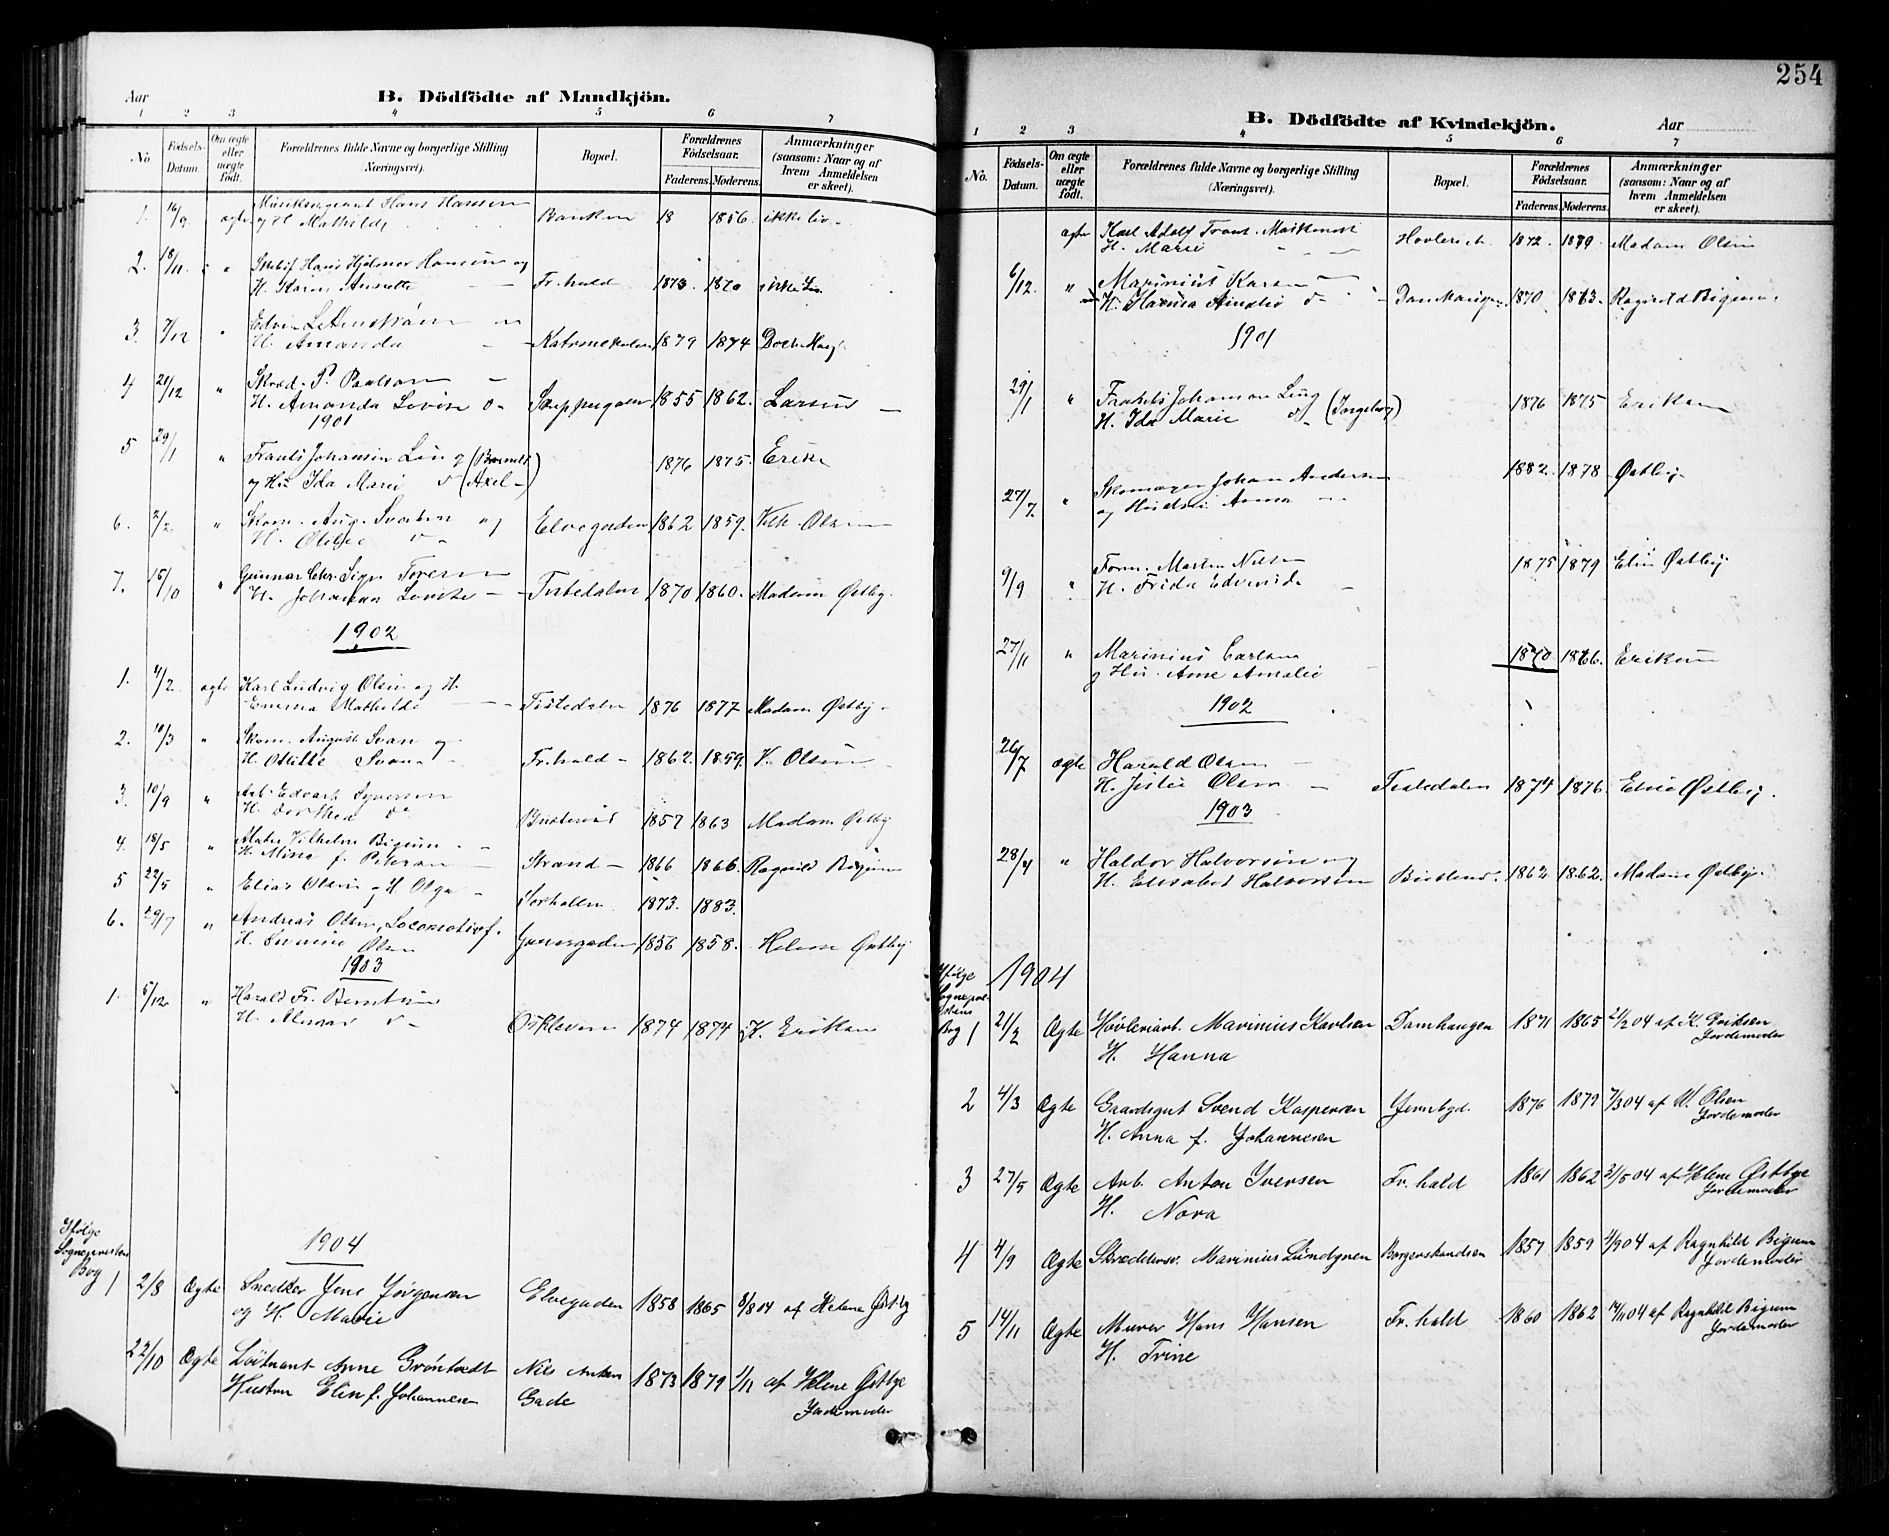 Aar
B. Dödfödte af Mandkjön.
1 2 3 4 5 6 7
No.
Födsels-Datum.
Om ægte eller uægte födt.
Forældrenes fulde Navne og borgerlige Stilling
(Næringsvei).
Bopæl.
Forældrenes Födselsaar.
Faderens. Moderens.
Anmærkninger
(saasom: Naar og af
hvem Anmeldelsen
er skeet).
1. 16/9 ægte Musiksergeant Hans Hansen
og H. Mathilde Banken 18 1856. ikke liv
2. 18/11 " Hans Hjalmar Hansen og
H. Karen Annette Fr.hald 1873. 1870 ikke
3. 7/12 "
H. Amanda 1879 1874
4 21/12 " Skræd. P. Paulsen
H. Amanda Lovise d- 1855 1862. Larsen
1901
5 29/1 " Frants Johansen Ling (Barnets
og Hu. Ida Marie d (Axel-) 1876 1875. Erik
6. 2/2 " Skom. Aug. Svan og
H. Otilie d- Elvegaden 1862 1859. Vilh. Olsen
7. 15/10 " Gunnar Chr. Sigv. Toresen
H. Johanna Lovise Tistedalen 1870 1860. Madam Østby.
1902
1. 4/2 ægte Karl Ludvig Olsen og H.
Emma Mathilde Tistedalen 1876 1877 Madam Østby
2. 10/3 " Skom. August Svan og
H. Otilie Svan Fr.hald 1862. 1859. V. Olsen
3. 10/9 " Arb. Edvart Syversen
H. Dorthea d- 1857 1863 Madam Østby
4. 18/5 " Vilhelm Bigum
H. Mina f. Petersen Strand 1866 1866. Ragnild Bigum
5 22/5 " Elias Olsen og H Olga Sorhallen 1873. 1883.
6. 29/7 " Andreas Olsen, Locomotivf.
H. Olsen 1856 1858. Helene Østby
1903
1. 5/12 " Harald Fr. Berntsen
H. d- 1874 1874 K. Eriksen
Ifølge
Sogneprestens
Bog
1904
1 2/8 Ægte Snedker Jens Jørgensen
og H. Marie Elvegaden 1858 1865 8/8 04 af Helene Østby
2 2/10 Ægte Löitnant Arne Gröntvedt
Hustru Elin f. Johannesen Nils Anken
Gade 1873 1879 1/11 af Helene Østbye
Jordemoder
254
B. Dödfödte af Kvindekjön.
Aar
1 2 3 4 5 6 7
No.
Födsels-Datum.
Om ægte eller uægte födt.
Forældrenes fulde Navne og borgerlige Stilling
(Næringsvei).
Bopæl.
Forældrenes Födselsaar.
Faderens. Moderens.
Anmærkninger
(saasom: Naar og af
hvem Anmeldelsen
er skeet).
ægte Karl Adolf
H. Marie 1872. 1879. Madam Olsen
6/12 " Marinius Karlsen
H. Hanna Amalie d- Damhaugen 1870 1863. Ragnild Bigum
1901
29/1 " Frants Johansen Ling
H. Ida Marie d- (Ingeborg) 1876 1875 Eriksen
27/7. " Skomager Johan Andersen
og Hustru Anna 1882. 1878 Østby
9/9 " Form. Martin Nilsen
H. Frida 1875 1879 Elise Østby
27/11 " Marinius Carlsen
og Hu. Anne Amalie 1870 1866. Eriksen
1902
26/7 ægte Harald Olsen
H. Olsen Tistedalen 1874 1876. Elise Østby.
1903
28/4 " Haldor Halvorsen og
H. Elisabet Halvorsen 1862 1862. Madam Østby.
Ifølge
Bog
1904
1 21/2 Ægte Høvleriarb. Marinius Karlsen
H. Hanna Damhaugen 1871 1865 21/2 04 af K. Eriksen
Jordemoder
2 4/3 Ægte Gaardsgut Svend Kaspersen
H. Anna f. Johannesen Jernbgd. 1876 1879 7/3 04 af W. Olsen
Jordemoder
3 27/5 Ægte Arb. Anton Iversen
H. Nora Fr. hald 1861 1862 2/5 04 af Helene Østbye
Jordemoder
4 4/9 Ægte Skrædderm. Marinius Lundgren Borgerskandsen 1857 1859 4/9 04 af Ragnhild Bigum
Jordemoder
5 14/11 Ægte Murer Hans Hansen
H. Trine Fr. hald 1860 1862 14/11 04 af Ragnhild Bigum
Jordemoder